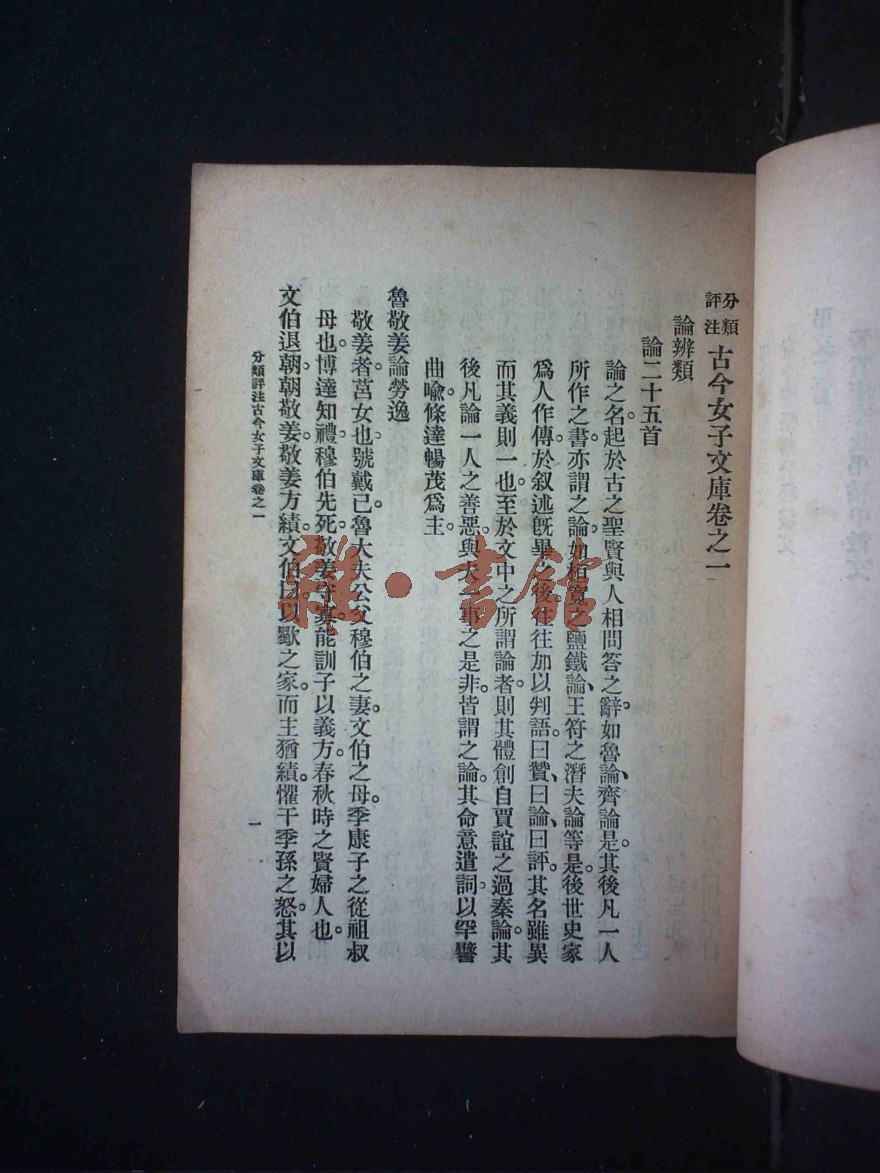 分類評注 古今女子文庫卷之一
論辨類
論二十五首
論之名。起於古之聖賢與人相問答之辭。如魯論、齊論是。其後凡一人
所作之書。亦謂之論。如桓寬之鹽鐵論、王符之潛夫論等是。後世史家
爲人作傳。於叙述旣畢之後。往往加以判語。曰贊、曰論、曰評。其名雖異
而其義則一也。至於文中之所謂論者。則其體創自賈誼之過秦論。其
後凡論一人之善惡。與夫一事之是非。皆謂之論。其命意遣詞。以罕譬
曲喩。條達暢茂爲主。
魯敬姜論勞逸
敬姜者。莒女也。號戴己。魯大夫公父穆伯之妻。文伯之母。季康子之從祖叔
母也。博達知禮。穆伯先死。敬姜守寡。能訓子以義方。春秋時之賢婦人也。
文伯退朝。朝敬姜。敬姜方績。文伯曰。以歜之家。而主猶績。懼干季孫之怒。其以
分類評注古今女子文庫卷之一
一
雅·書館